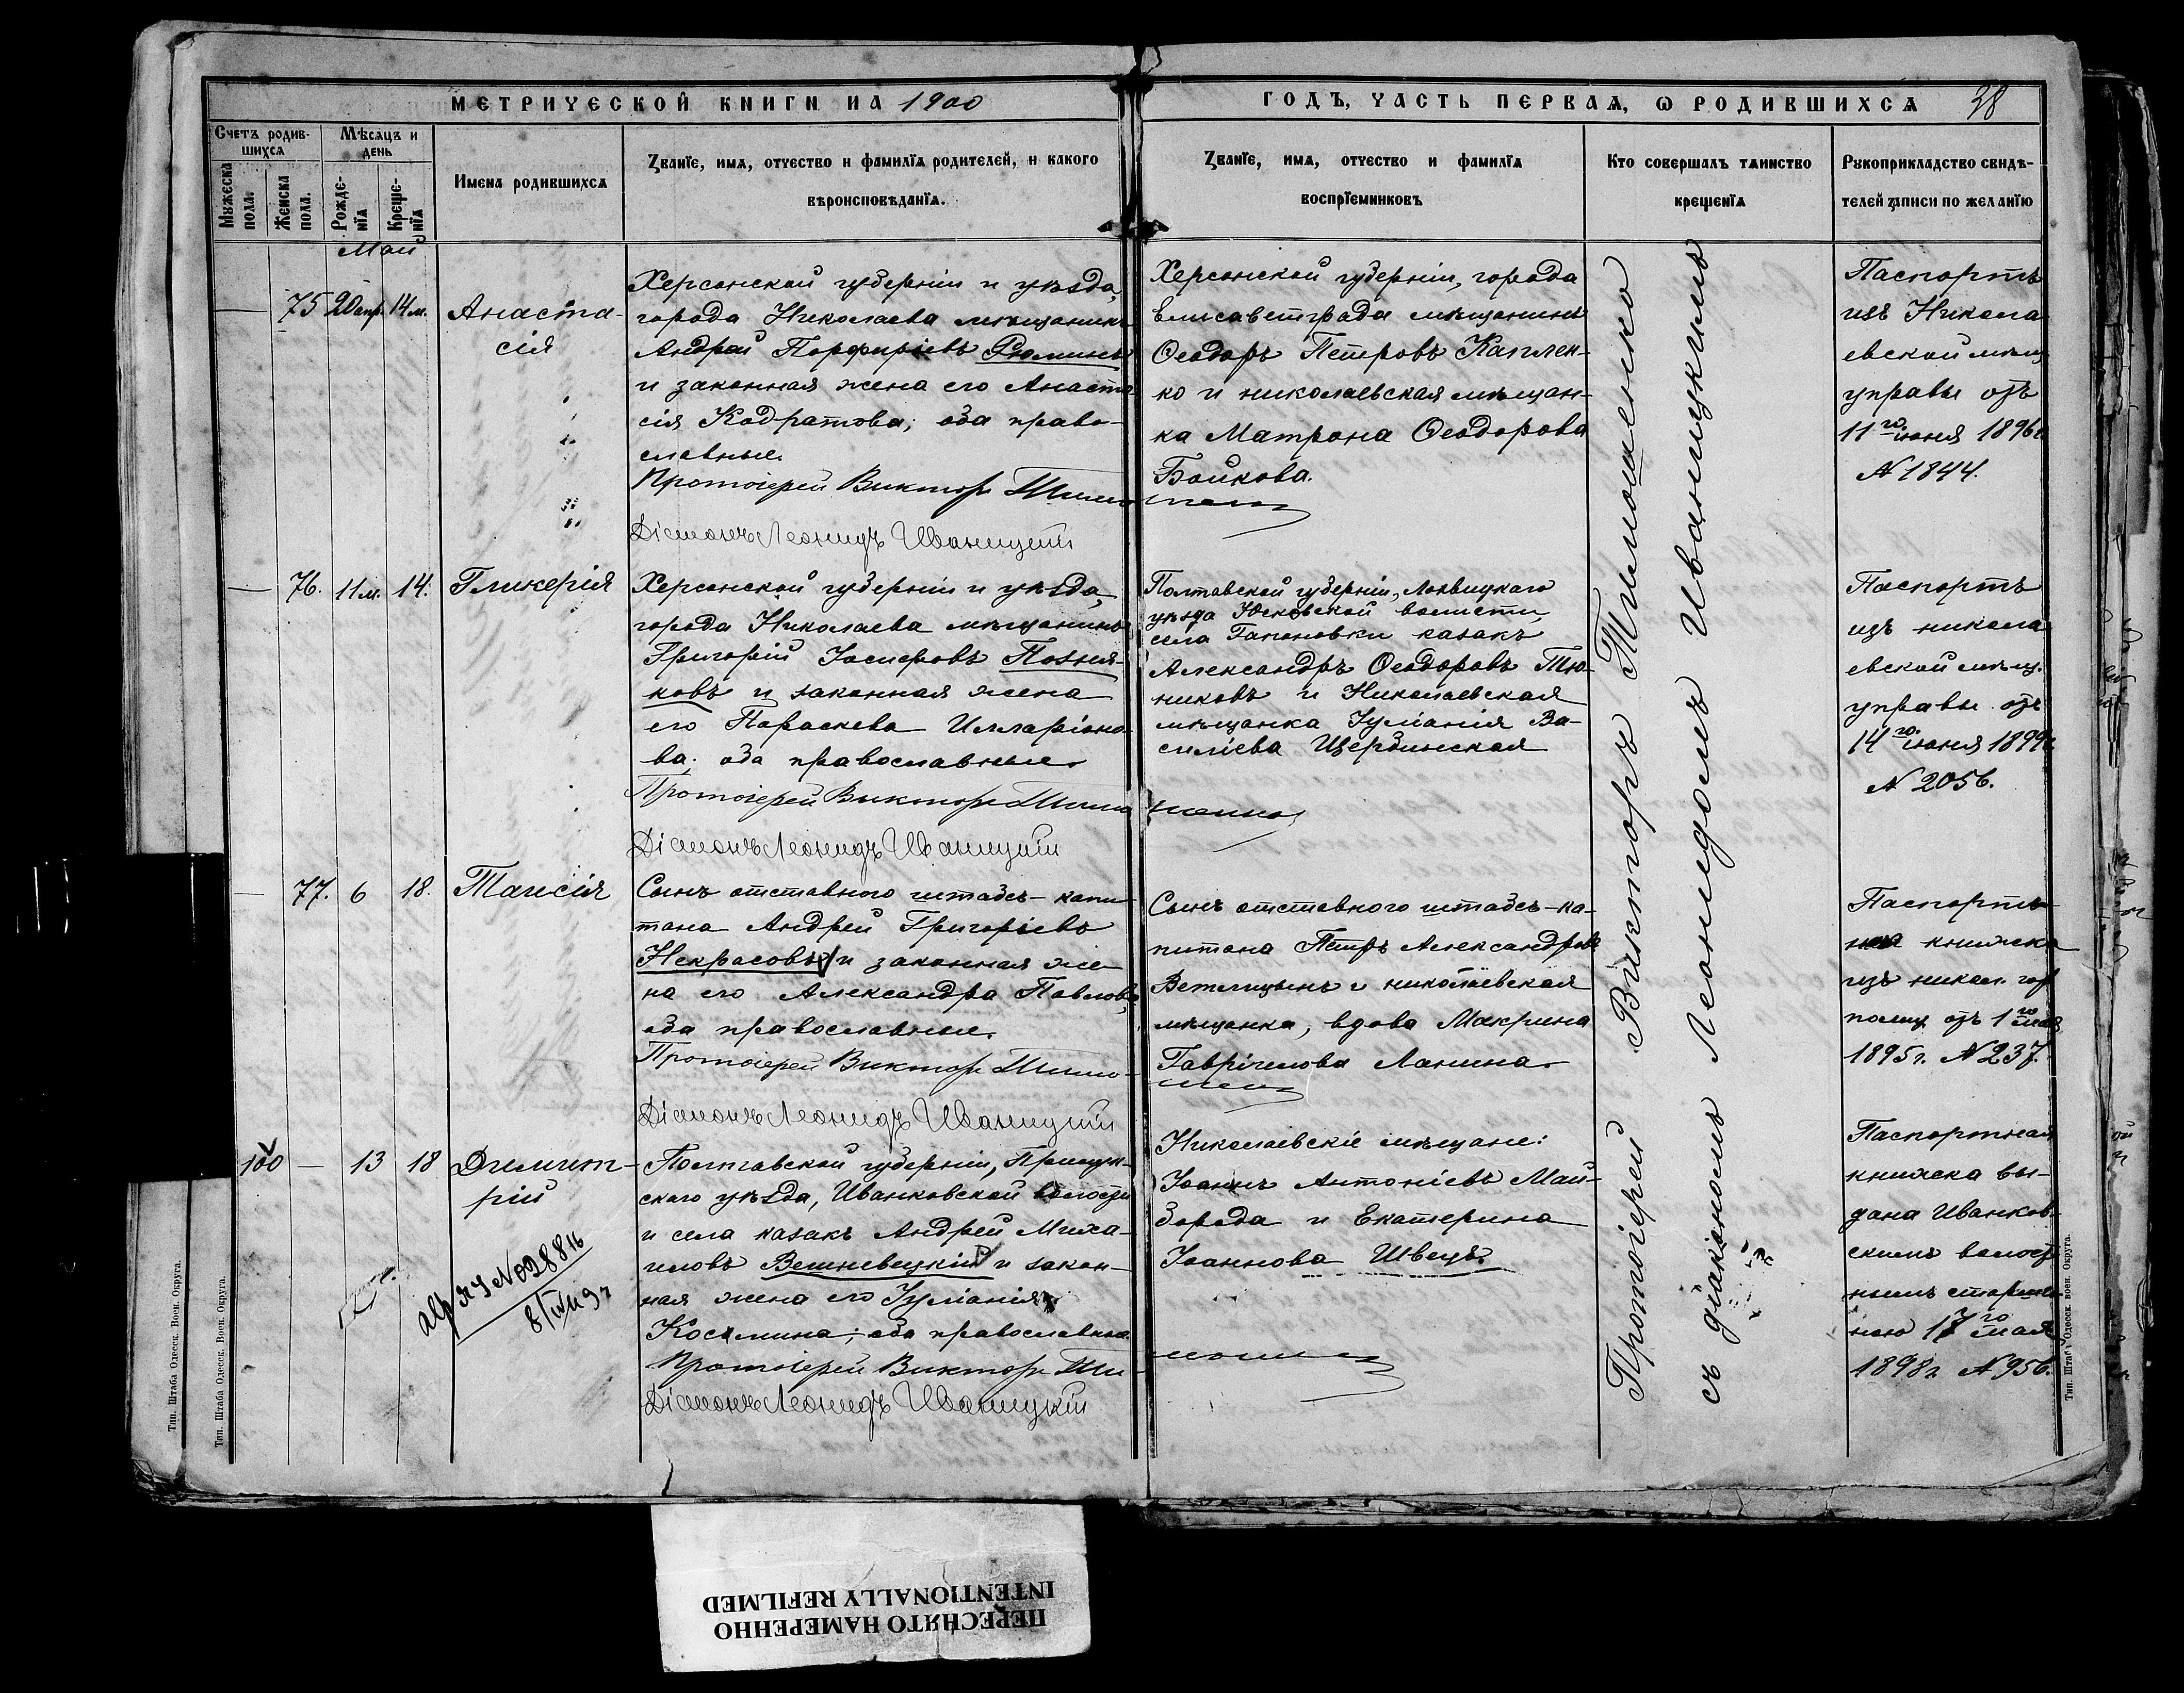 МЕТРИЧЕСКОЙ КНИГИ НА 1900
ГОДЪ, ЧАСТЬ ПЕРВАЯ, Ѡ РОДИВШИХСЯ 38
Счетъ родив-
шихся
Мѣсяцъ и
день
Мужеска
пола.
Женска
пола.
Рожде-
нїя
Креще-
нїя
Имена родившихся
Званїе, имя, отчество и фамилїя родителей, и какого
вѣроисповѣданїя.
Званїе, имя, отчество и фамилїя
воспрїемниковъ
Кто совершалъ таинство
крещенїя
Рукоприкладство свидѣ-
телей записи по желанїю
Май
— 75 20 апр. 14 м.
Анаста-
сія
Херсонской губерніи и уѣзда,
города Николаева мѣщанинъ
Андрей Порфиріевъ Рюминъ
и законная жена его Анаста-
сія Кодратова; оба право-
славные.
Протоіерей Виктор Тимошенко
Діаконъ Леонидъ Иваницкій
Херсонской губерніи, города
Елисаветграда мѣщанинъ
Ѳеодоръ Петровъ Каплен-
ко и николаевская мѣщан-
ка Матрона Ѳеодорова
Бойкова.
Паспортъ
изъ Никола
евской мѣщ
управы отъ
11го іюня 1896 г.
№ 1844.
— 76. 11 м. 14.
Гликерія
Херсонской губерніи и уѣзда,
города Николаева мѣщанинъ
Григорій Іосифовъ Позня-
ковъ и законная жена
его Параскева Илларіоно-
ва; оба православные.
Протоіерей Виктор Тимошенко
Діаконъ Леонидъ Иваницкій
Полтавской губерніи, Лохвицкаго
уѣзда Юсковской волости,
села Гапоновки казакъ
Александръ Ѳеодоровъ Тю-
никовъ и Николаевская
мѣщанка Іуліанія Ва-
силіева Щербинская
Паспортъ
изъ никола
евской мѣщ.
управы отъ
14го іюня 1899 г.
№ 2056.
— 77. 6 18.
Таисія
Сынъ отставного штабсъ-капи-
тана Андрей Григоріевъ
Некрасовъ и законная же-
на его Александра Павлова,
оба православные.
Протоіерей Виктор Тимошенко
Діаконъ Леонидъ Иваницкій
Сынъ отставного штабсъ-ка-
питана Петръ Александровъ
Ветлицынъ и николаевская
мѣщанка, вдова Макрина
Гавріилова Ланина.
Паспорт-
ная книжка
изъ никол. гор
полиц отъ 1го мая
1895 г. № 237.
100 — 13 18
Димит-
рій
Полтавской губерніи, Прилук-
скаго уѣзда, Иванковской волости
и села казакъ Андрей Миха-
иловъ Вешневецкій и закон-
ная жена его Іуліанія
Космина; оба православные.
Протоіерей Виктор Ти-
мошенко
Діаконъ Леонидъ Иваницкій
Николаевскіе мѣщане:
Іоаннъ Антоніевъ Май-
борода и Екатерина
Іоаннова Швецъ.
Паспортная
книжка вы-
дана Иванков-
скимъ волост
нымъ старши-
ною 17го мая
1898 г. № 956.
Протоіерей Викторъ Тимошенко
съ діакономъ Леонидомъ Иваницкимъ
Тип. Штаба Одесск. Воен. Округа.
Тип. Штаба Одесск. Воен. Округа.
Тип. Штаба Одесск. воен. Округа.
ПЕРЕСНЯТО НАМЕРЕННО
INTENTIONALLY REFILMED